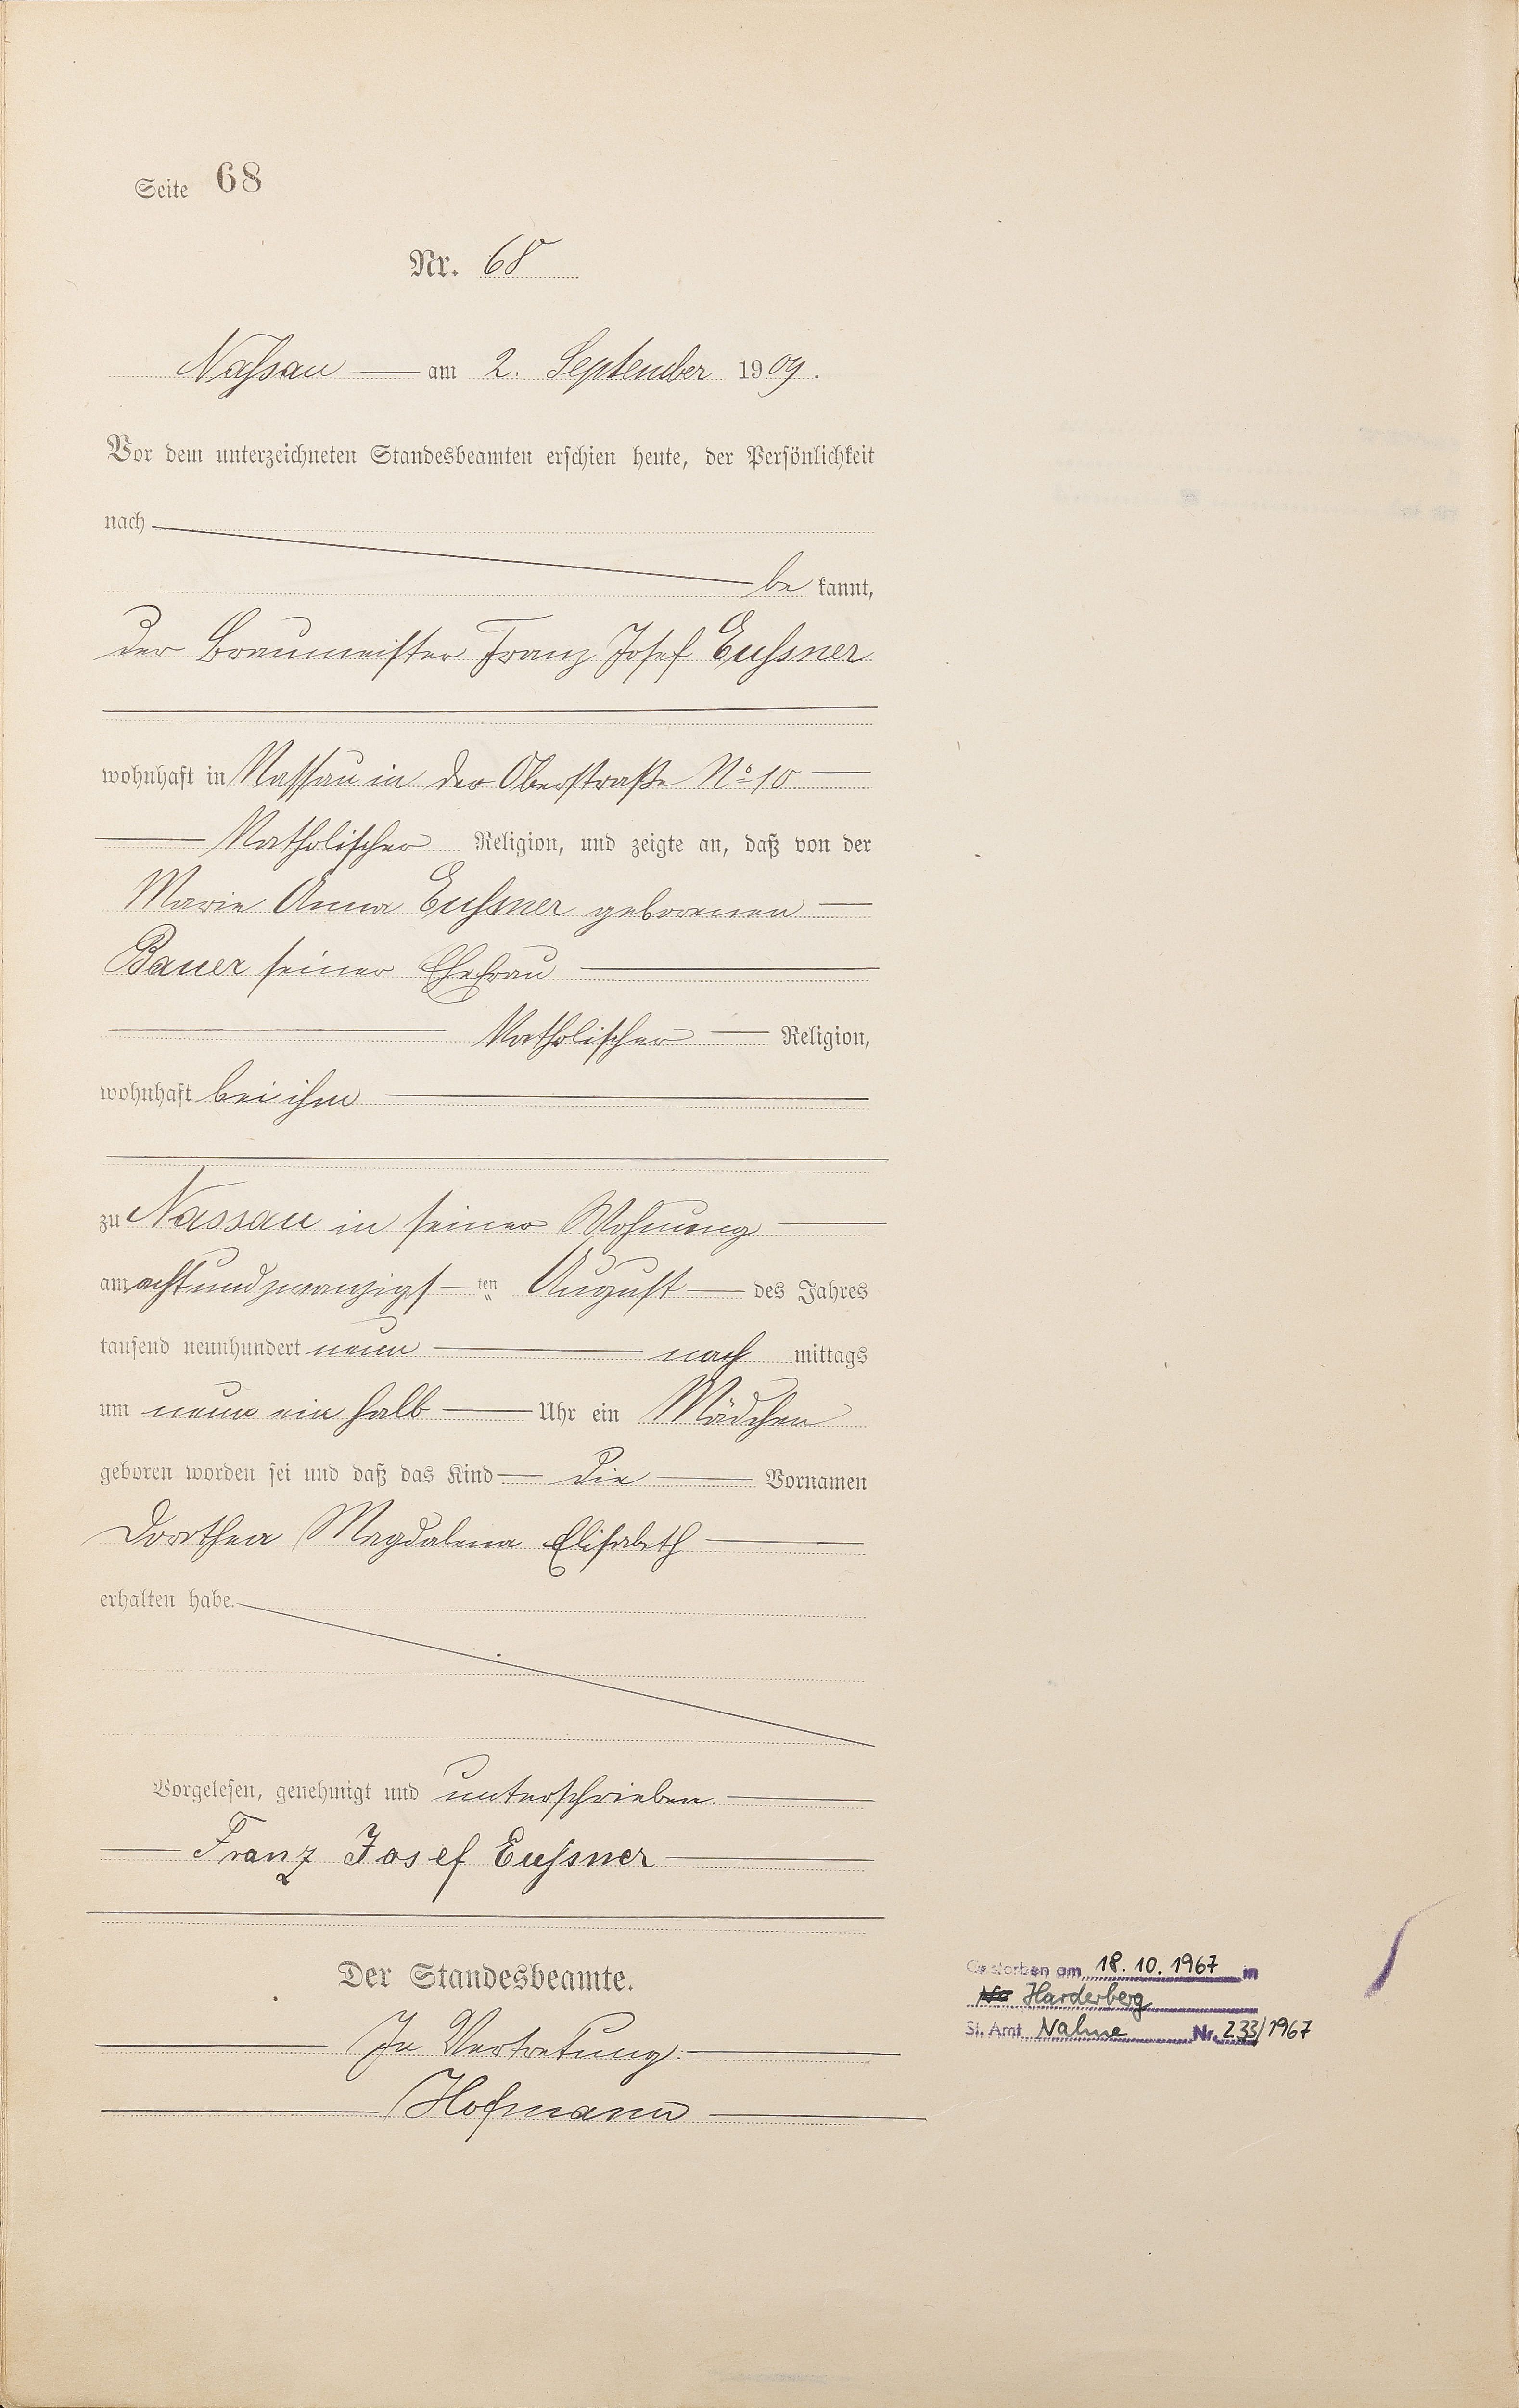 Seite 68
Nr. 68
Naſsau — am 2. September 1909.
Vor dem unterzeichneten Standesbeamten erschien heute, der Persönlichkeit
nach
be kannt,
der Braumeister Franz Josef Euſsner
wohnhaft in Nassau in der Oberstraße No 10 —
— Katholischer Religion, und zeigte an, daß von der
Marie Anna Euſsner geborenen —
Bauer seiner Ehefrau —
— Katholischer — Religion,
wohnhaft bei ihm —
zu Nassau in seiner Wohnung —
am achtundzwanzigs — ten August — des Jahres
tausend neunhundert neun — nach mittags
um neun ein halb — Uhr ein Mädchen
geboren worden sei und daß das Kind — die — Vornamen
Dorothea Magdalena Elisabeth —
erhalten habe.
Vorgelesen, genehmigt und unterschrieben. —
— Franz Josef Euſsner —
Der Standesbeamte.
— In Vertretung. —
— Hofmann —
Gestorben am 18.10.1967 in
Harderberg
St. Amt Nahne Nr. 233/1967